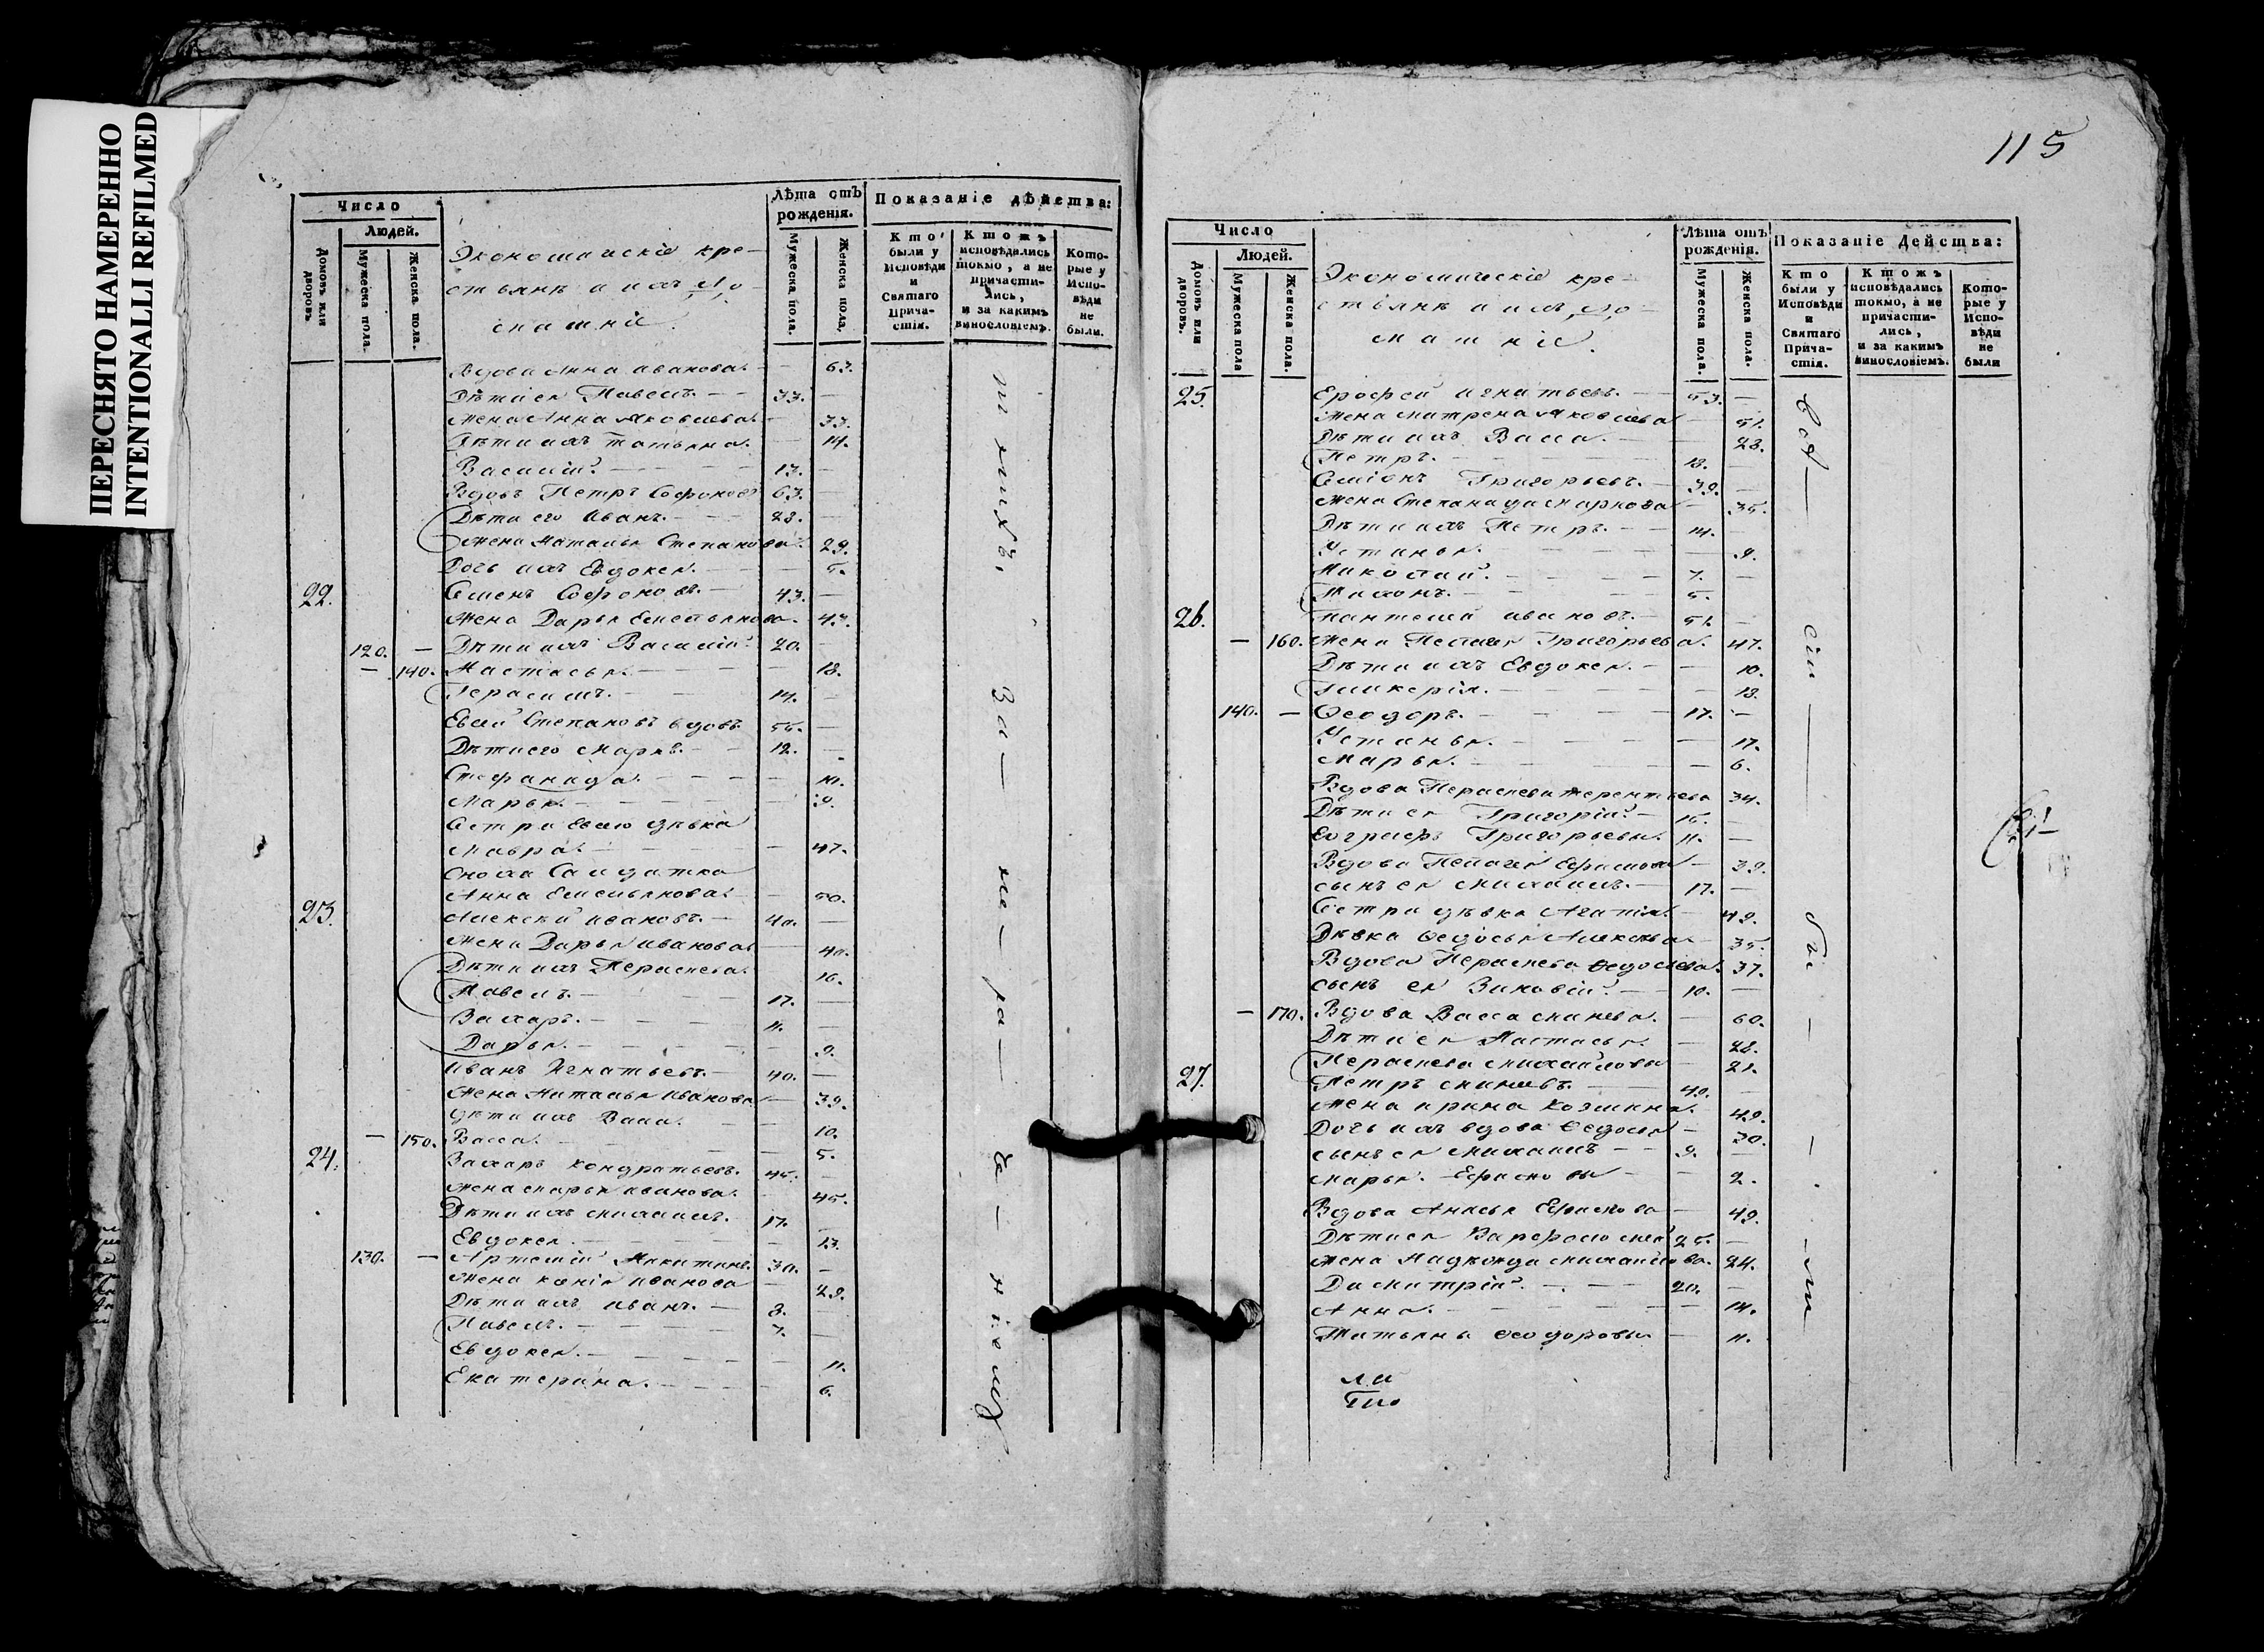 ПЕРЕСНЯТО НАМЕРЕННО
INTENTIONALLI REFILMED
Число
Людей.
Домовъ или дворовъ.
Мужеска пола.
Женска пола.
Экономическіе кре-
стьянѣ и ихъ до-
машніе.
Лѣта отъ рожденія.
Мужеска пола.
Женска пола.
Показаніе дѣйства:
Кто были у Исповѣди и Святаго Прича-стія.
Ктожъ исповѣдались токмо, а не причасти-лись, и за какимъ винословіемъ.
Кото-рые у Испо-вѣди не были.
Вдова Анна Иванова. — 63.
Дѣти ея Павелъ. — 33. —
Жена Анна Яковлева. — 33.
Дѣти ихъ Татьяна. — 14.
Василій. — 13. —
Вдовъ Петръ Софоновъ 63. —
Дѣти его Иванъ. — 28. —
Жена Наталья Степанова. 29.
Дочь ихъ Евдокея. — 5.
22. Семенъ Софоновъ. — 43. —
Жена Дарья Емельянова. 43.
120. — Дѣти ихъ Василій. 20. —
— 140. Настасья. — 18.
Герасимъ. — 14. —
Евсей Степановъ вдовъ. 55. —
Дѣти его Марка. — 12. —
Стефанида. —
Марья. — 9.
Сестра Евсею дѣвка
Мавра. — 47.
Сноха Салдатка
Анна Емельянова. — 50.
23. Алексей Ивановъ. — 40. —
Жена Дарья Иванова — 40.
Дѣти ихъ Параскева. 16.
Павелъ. — 17. —
Захаръ. — 11. —
Дарья. — 9.
Иванъ Игнатьевъ. — 40. —
Жена Наталья Иванова — 39.
дѣти ихъ — 10.
— 150. Васса. — 5.
24. Захаръ Кондратьевъ. 45. —
Жена Марья Иванова. — 45.
Дѣти ихъ Михаилъ. 17. —
Евдокея. — 13.
130. — Артемій Никитинъ. 30. —
Жена Ксенія Иванова — 29.
Дѣти ихъ Иванъ. — 8. —
Павелъ. — 7. —
Евдокея. — 11.
Екатерина. — 6.
за — не — ра — ніемъ
115
Число
Людей.
Домовъ или дворовъ.
Мужеска пола
Женска пола.
Экономическіе кре-
стьянѣ и ихъ до-
машніе.
Лѣта отъ рожденія.
Мужеска пола.
Женска пола.
Показаніе Действа:
Кто были у Исповѣди и Святаго Прича-стія.
Ктожъ исповѣдались токмо, а не причасти-лись, и за какимъ винословіемъ.
Кото-рые у Испо-вѣди не были
25. Ерофей Игнатьевъ. — 53. —
Жена Матрена Яковлева — 51.
Дѣти ихъ Васса. — 28.
Петръ. — 18. —
Семіонъ Григорьевъ. — 39. —
Жена Степанида Маркова — 35.
Дѣти ихъ Петръ. — 14. —
Устинья. — 9.
Николай. — 7. —
5. —
26. Пантелей Ивановъ. — 51. —
— 160. Жена Пелагея Григорьева. 47.
Дѣти ихъ Евдокея. — 10.
Гликерія. — 18.
140. — Ѳеодоръ. — 17. —
Устинья. — 17.
Марья. — 6.
Вдова Параскева Терентьева 34.
Дѣти ея Григорій — 15. —
Евграфъ Григорьевъ. 11. —
Вдова Пелагея Ефимова — 39.
сынъ ея Михаилъ. — 17. —
Сестра дѣвка Агапія. — 49.
Дѣвка Ѳедосья Алексѣева — 35.
Вдова Параскева Ѳедосѣева. 37.
сынъ ея Зиновій. — 10. —
— 170. Вдова Васса — 60.
Дѣти ея Настасья. — 28.
Параскева Михайлова — 21.
27. Петръ — 49. —
Жена Ирина Козмина. 49.
Дочь ихъ вдова Ѳедосья — 30.
сынъ ея Михаилъ — 9. —
Марья — 2.
Вдова Анисья — 49.
Дѣти ея Варфоломей 25. —
Жена Надежда Михайлова. 24.
Димитрій. — 20. —
Анна. — 14.
Татьяна Ѳеодорова — 11.
всѣ — сіи — бы — ли